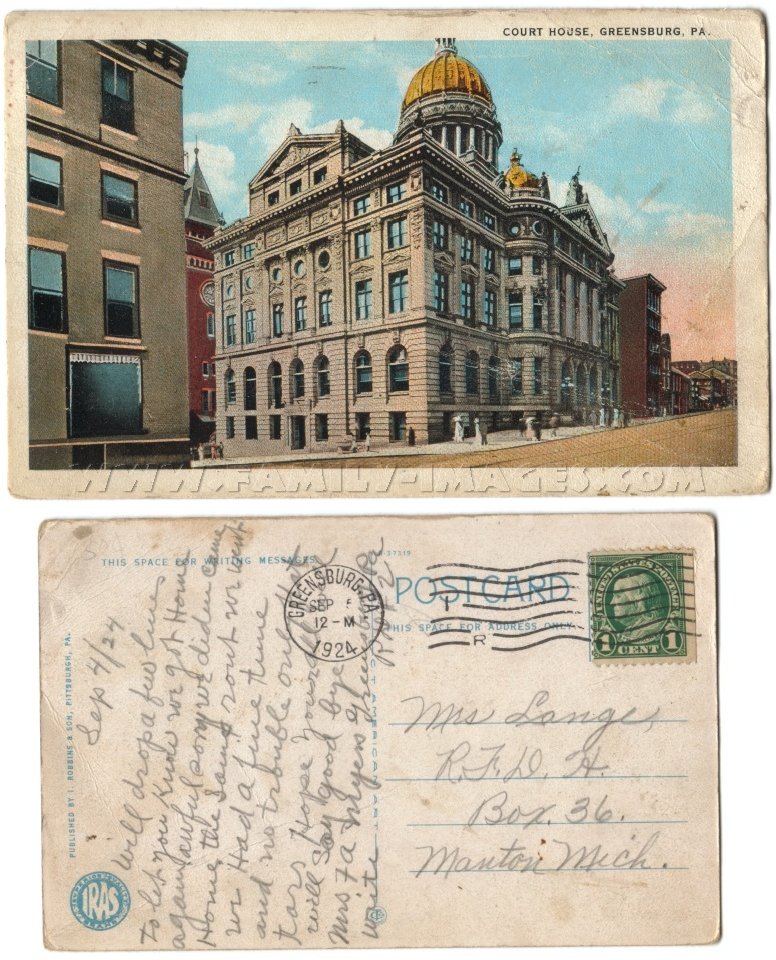 COURT HOUSE, GREENSBURG, PA.
WWW.FAMILY-IMAGES.COM
THIS SPACE FOR WRITING MESSAGES
POSTCARD
THIS SPACE FOR ADDRESS ONLY
PUBLISHED BY I. ROBBINS & SON, PITTSBURGH, PA.
IRAS
GREENSBURG, PA.
SEP
12-M
1924
UNITED STATES POSTAGE
1 CENT 1
Sep 4/24
Well drop a few lines
to let you know we got Home
again awful sorry we diden come
Home the same rout we went
we Had a fine time
and no trouble on the
tars Hope you
will say good bye
Mrs F A Myers Greensburg Pa
write
Mrs Lange,
R.F.D.
Box. 36.
Manton Mich.